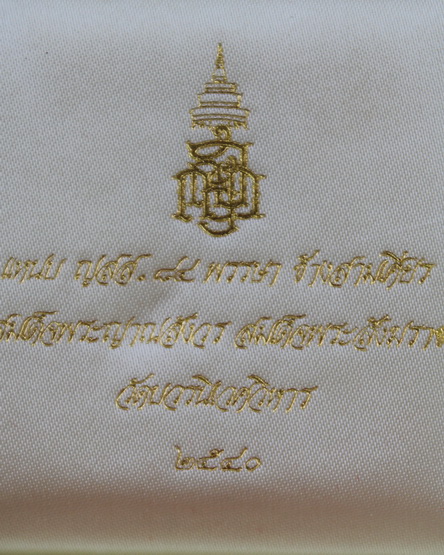 แหนบ ญสส. ๘๔ พรรษา ช้างสามเศียร
สมเด็จพระญาณสังวร สมเด็จพระสังฆราช
วัดบวรนิเวศวิหาร
๒๕๔๐